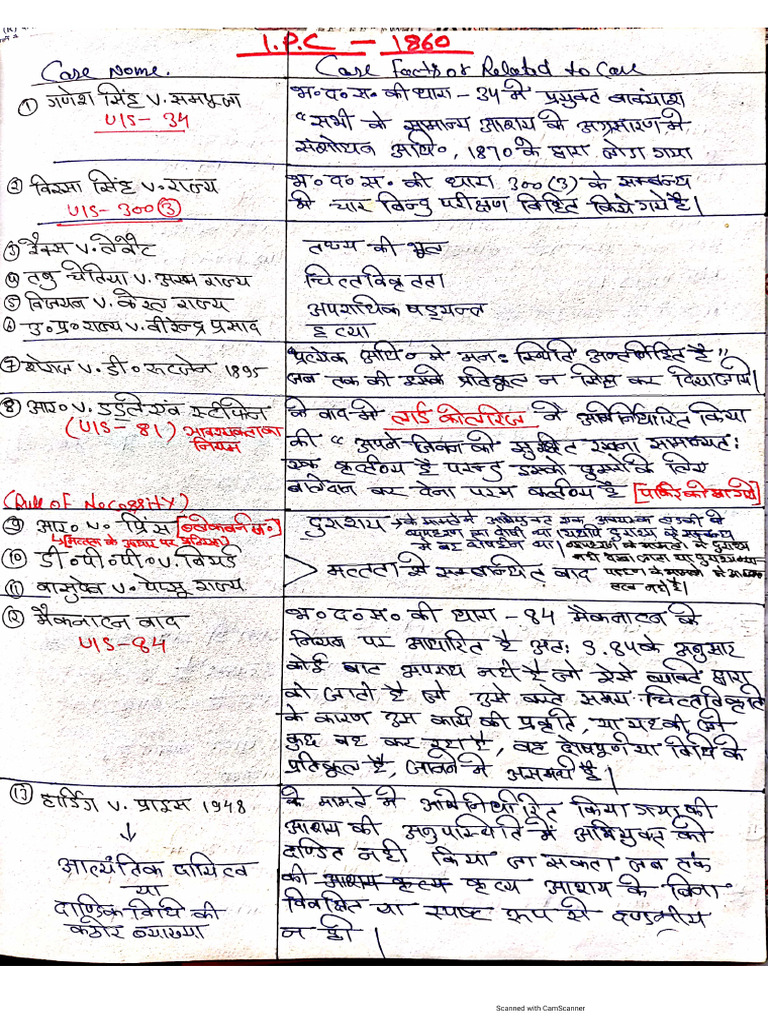 I.P.C – 1860
Case Name.
Case Facts or Related to Case
① गणेश सिंह v. रामपूजा
U/S – 34
भ॰द॰स॰ की धारा – 34 में प्रयुक्त वाक्यांश
"सभी के सामान्य आशय को अग्रसारण में
संशोधन अधि॰, 1870 के द्वारा
② विरसा सिंह v. राज्य
U/S – 300 ③
भ॰द॰स॰ की धारा 300(3) के सम्बन्ध
में चार बिन्दु परीक्षण विहित किये गये है|
③ रैक्स v. लेवेट
तथ्य की भूल
④ चेतिया v. असम राज्य
चित्तविकृतता
⑤ विजयन v. केरल राज्य
अपराधिक षड्यन्त्र
⑥ उ॰प्र॰ राज्य v. वीरेन्द्र प्रसाद
हत्या
⑦ v. डी॰ रूटजेन 1895
"प्रत्येक अधि॰ मे मनः स्थिति अन्तर्निहित है"
जब तक की इसके प्रतिकूल न सिद्ध कर दिया जाये|
⑧ आर॰ v. डडले एवं स्टीफेन
(U/S – 81) आवश्यकता का
नियम
(Rule of Necessity)
के वाद में लार्ड कोलरिज ने अभिनिर्धारित किया
की "अपने जीवन को सुरक्षित रखना सामान्यतः
एक कर्तव्य है परन्तु उसको दुसरो के लिए
बलिदान कर देना परम कर्तव्य है
⑨ आर॰ v. प्रिंस
दुराशय
⑩ डी॰पी॰पी॰ v. वियर्ड
⑪ वासुदेव v. पेप्सू राज्य
मत्तता से सम्बन्धित वाद
⑫ मैकनाटन वाद
U/S – 84
भ॰द॰स॰ की धारा – 84 मैकनाटन के
नियम पर आधारित है अतः S. 84 के अनुसार
कोई बात अपराध नही है जो ऐसे व्यक्ति द्वारा
की जाती है जो उसे करते समय चित्तविकृति
के कारण उस कार्य की प्रकृति, या यह की जो
कुछ वह कर रहा है, वह दोषपूर्ण या विधि के
प्रतिकूल है, जानने में असमर्थ है|
⑬ हार्डिंग v. प्राइस 1948
↓
आत्यंतिक दायित्व
या
दाण्डिक विधि की
कठोर व्याख्या
के मामले में अभिनिर्धारित किया गया की
आशय की अनुपस्थिति में अभियुक्त को
दण्डित नही किया जा सकता जब तक
की कृत्य आशय के बिना
विवक्षित या स्पष्ट रूप से दण्डनीय
न हो|
Scanned with CamScanner